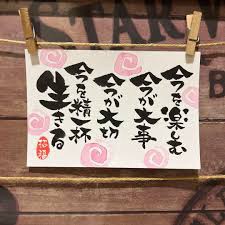 今を楽しむ
今が大事
今が大切
今を精一杯
生きる